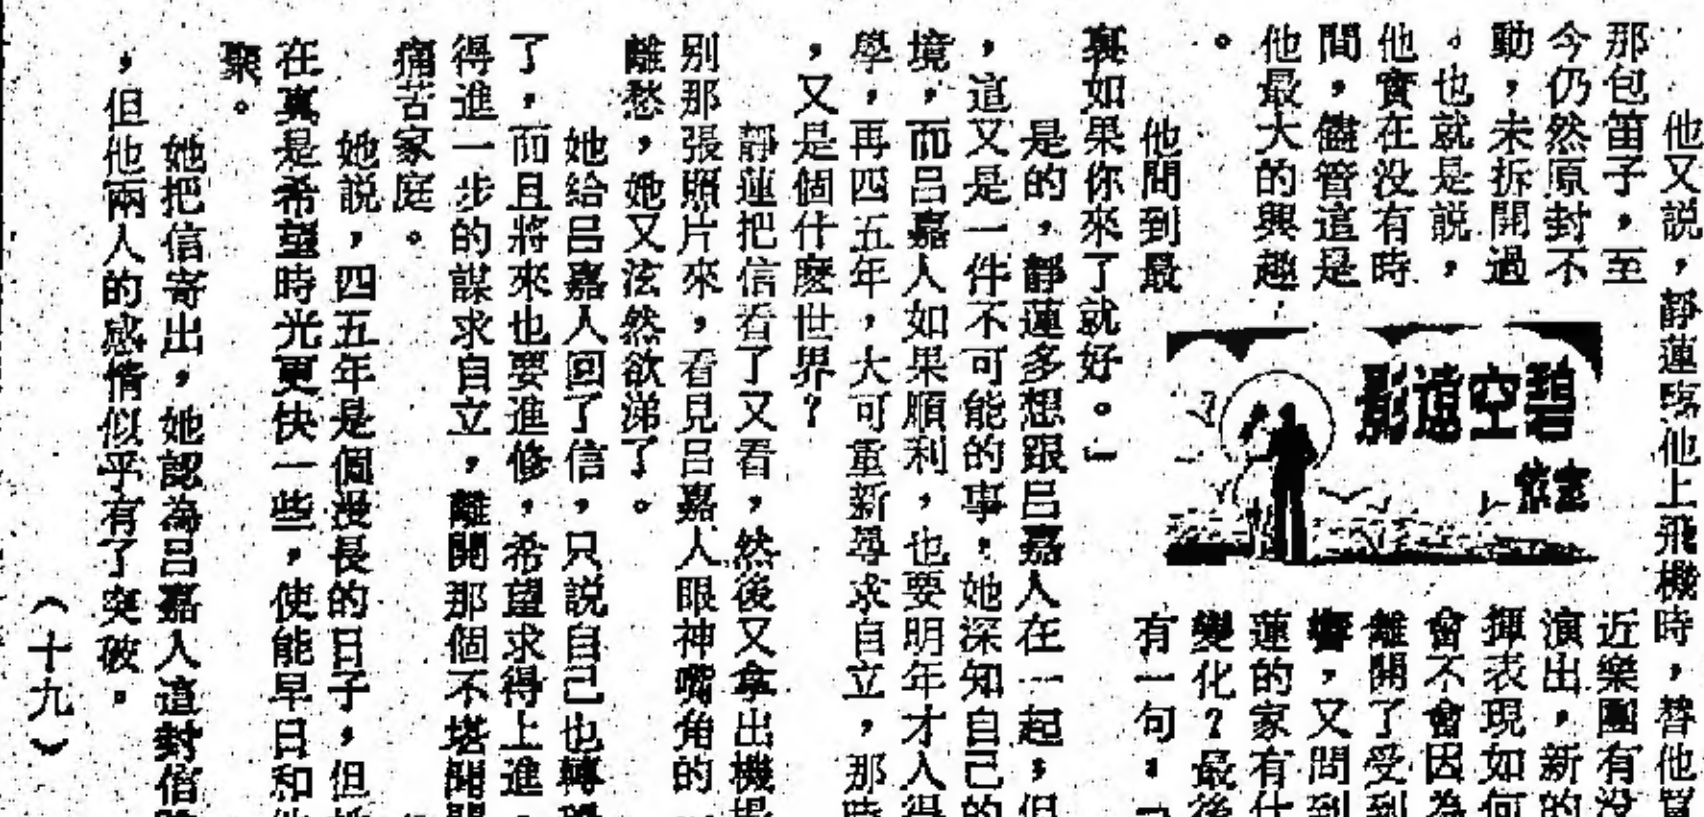 他又説，靜蓮臨他上飛機時，替他買
那包笛子，至
今仍然原封不
動，未拆開過
。也就是説，
他實在没有時
間，儘管這是
他最大的興趣
。
碧空遠影
近樂團有没
演出，新的
揮表現如何
會不會因為
離開了受到
響，又問到
蓮的家有什
變化？最後
有一句，「
他問到最
裏如果你來了就好。」
是的，靜蓮多想跟呂嘉人在一起，但
，這又是一件不可能的事，她深知自己的
境，而呂嘉人如果順利，也要明年才入得
學，再四五年，大可重新尋求自立，那時
，又是個什麽世界？
靜蓮把信看了又看，然後又拿出機場
别那張照片來，看見呂嘉人眼神嘴角的
離愁，她又泫然欲涕了。
她給呂嘉人回了信，只説自己也轉
了，而且將來也要進修，希望求得上進
得進一步的謀求自立，離開那個不堪聞
痛苦家庭。
她説，四五年是個漫長的日子，但她
在真是希望時光更快一些，使能早日和他
聚。
她把信寄出，她認為呂嘉人這封信
，但他兩人的感情似乎有了突破。
（十九）